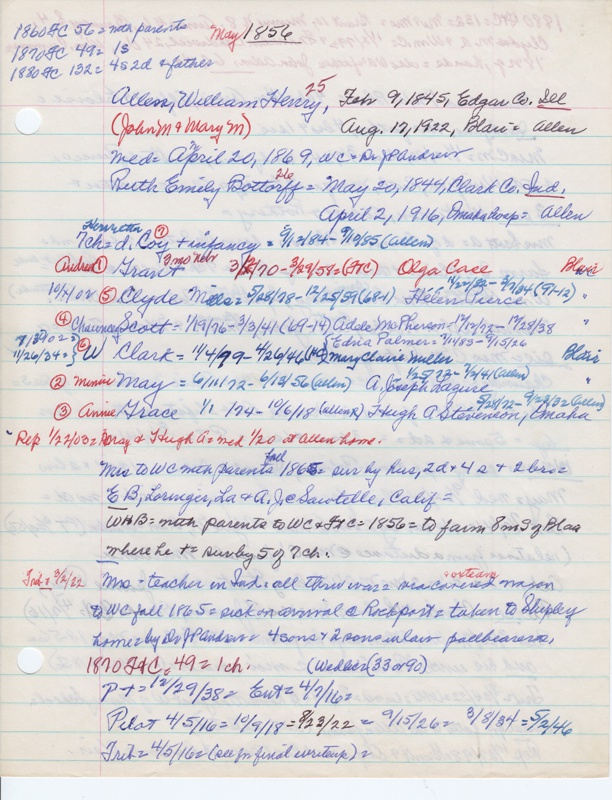 1860 FtC 56 = with parents
May 1856
1870 FtC 49 = 1s
1880 FtC 132 = 4s 2d & father
Allen, William Henry, 25 Feb 9, 1845, Edgar Co. Ill
(John M & Mary M) Aug. 17, 1922, Blair = Allen
med = April 20, 1869, WC = Dr JP Andrew
Ruth Emily Bottorff 26 = May 20, 1844, Clark Co, Ind.
April 2, 1916, Omaha hosp = Allen
Henrietta
7ch = d. Coy ⑦ + infancy = 9/12/84 - 9/19/85 (allen)
Andrew ① Grant 3/ /70 - 3/29/58 = (FtC) Olga Case Blair
(91-12)
10/4/02 ⑤ Clyde Mills = 5/28/78 - 12/25/59 (68-1) Helen Pierce "
④ Chauncey Scott = 1/19/76 - 3/3/41 (69-14) Adde McPherson = 12/12/72 - 12/28/38 "
Edna Palmer =
11/26/34 = ⑥ W Clark = 4/26/46 Mary Claire Miller Blair
(allen)
② Minnie May = 6/11/72 - 6/12/56 (allen) A. Joseph "
③ Annie Grace 1/1 /74 - 10/6/18 (allen R) Hugh A Stevenson, Omaha
" Rep 1/22/03 = Gray & Hugh A = med 1/20 at allen home.
Mrs to WC with parents fall 1865 = sur by hus, 2d & 4 s & 2 bro =
E B, Loringer, La & A, J, c Sawtelle, Calif =
WHB = with parents to WC & FtC = 1856 = to farm 8 m S of Blair
where he + = sur by 5 of 7 ch.
Trib = 3/2/22 Mrs = teacher in Ind = all thru war = via covered wagon
to WC fall 1865 = sick on arrival @ Rockport = taken to Shipley
home = by Dr JP Andrew = 4 sons & 2 sons in law pallbearers.
1870 FtC = 49 = 1 ch. (33 or 90)
P + = 12/29/38 = Ent = 4/7/16 =
Pilot 4/5/16 = 10/9/18 = 8/23/22 = 9/15/26 = 3/8/34 = 5/2/46
Trib = 4/5/16 = (see for final writeup) =